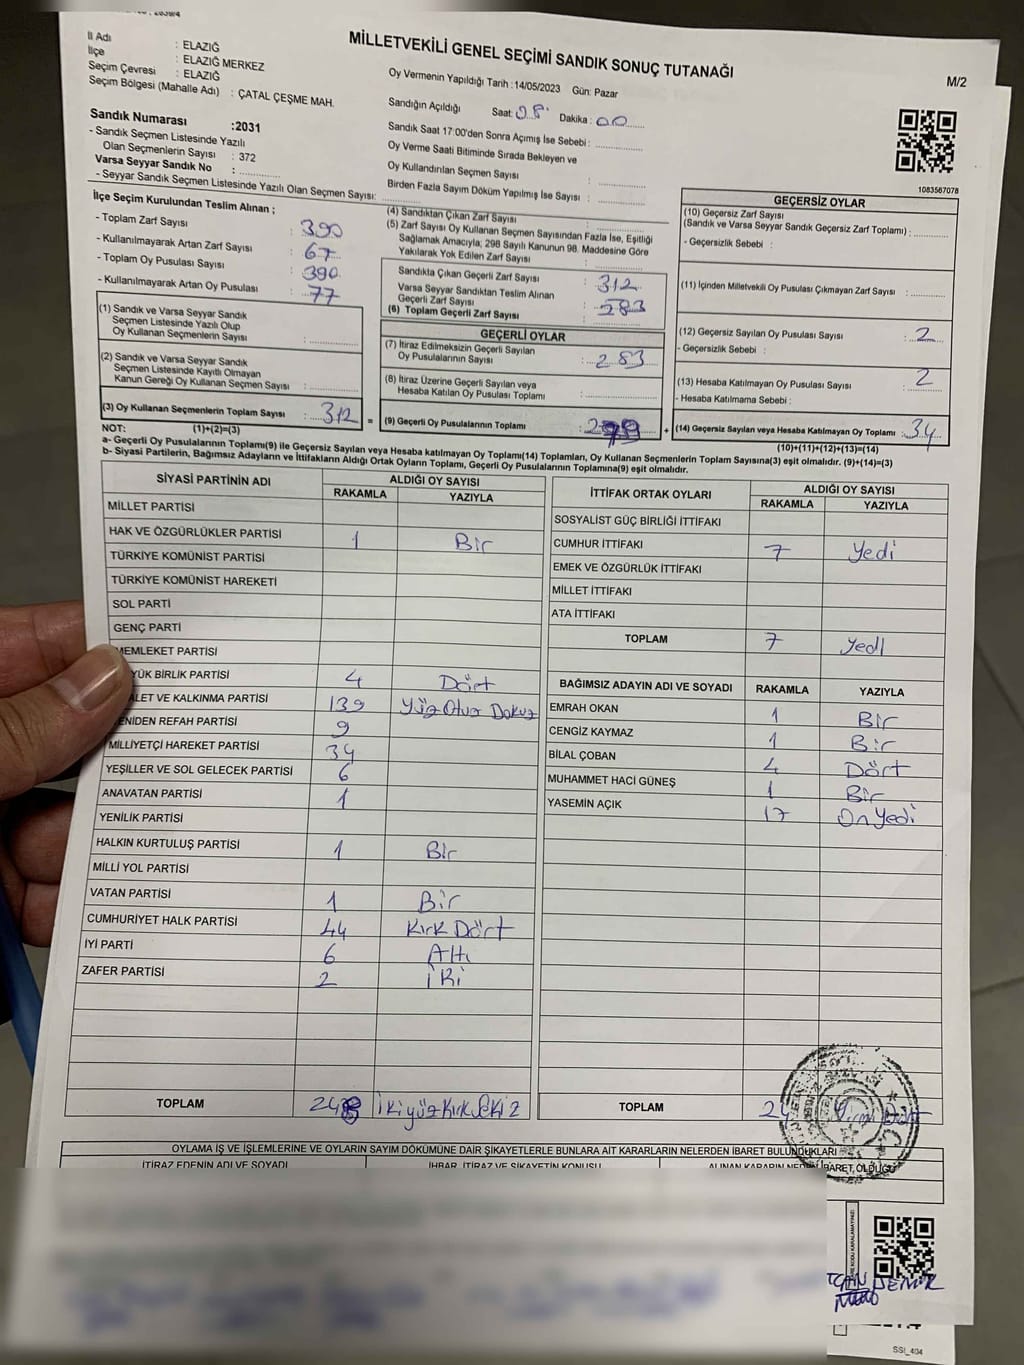 MİLLETVEKİLİ GENEL SEÇİMİ SANDIK SONUÇ TUTANAĞI
M/2
İl Adı : ELAZIĞ
İlçe : ELAZIĞ MERKEZ
Seçim Çevresi : ELAZIĞ
Seçim Bölgesi (Mahalle Adı) : ÇATAL ÇEŞME MAH.
Sandık Numarası :2031
- Sandık Seçmen Listesinde Yazılı
Olan Seçmenlerin Sayısı : 372
Varsa Seyyar Sandık No :
- Seyyar Sandık Seçmen Listesinde Yazılı Olan Seçmen Sayısı:
Oy Vermenin Yapıldığı Tarih :14/05/2023 Gün: Pazar
Sandığın Açıldığı Saat: 08 Dakika : 00
Sandık Saat 17:00'den Sonra Açılmış İse Sebebi :
Oy Verme Saati Bitiminde Sırada Bekleyen ve
Oy Kullandırılan Seçmen Sayısı :
Birden Fazla Sayım Döküm Yapılmış İse Sayısı :
1083567078
İlçe Seçim Kurulundan Teslim Alınan ;
- Toplam Zarf Sayısı : 390
- Kullanılmayarak Artan Zarf Sayısı : 67
- Toplam Oy Pusulası Sayısı : 390
- Kullanılmayarak Artan Oy Pusulası : 77
(1) Sandık ve Varsa Seyyar Sandık
Seçmen Listesinde Yazılı Olup
Oy Kullanan Seçmenlerin Sayısı :
(2) Sandık ve Varsa Seyyar Sandık
Seçmen Listesinde Kayıtlı Olmayan
Kanun Gereği Oy Kullanan Seçmen Sayısı :
(3) Oy Kullanan Seçmenlerin Toplam Sayısı : 312 =
(1)+(2)=(3)
(4) Sandıktan Çıkan Zarf Sayısı :
(5) Zarf Sayısı Oy Kullanan Seçmen Sayısından Fazla İse, Eşitliği
Sağlamak Amacıyla; 298 Sayılı Kanunun 98. Maddesine Göre
Yakılarak Yok Edilen Zarf Sayısı :
Sandıkta Çıkan Geçerli Zarf Sayısı : 312
Varsa Seyyar Sandıktan Teslim Alınan
Geçerli Zarf Sayısı :
(6) Toplam Geçerli Zarf Sayısı : 583
GEÇERLİ OYLAR
(7) İtiraz Edilmeksizin Geçerli Sayılan
Oy Pusulalarının Sayısı : 283
(8) İtiraz Üzerine Geçerli Sayılan veya
Hesaba Katılan Oy Pusulası Toplamı :
(9) Geçerli Oy Pusulalarının Toplamı : +
GEÇERSİZ OYLAR
(10) Geçersiz Zarf Sayısı
(Sandık ve Varsa Seyyar Sandık Geçersiz Zarf Toplamı) :
- Geçersizlik Sebebi :
(11) İçinden Milletvekili Oy Pusulası Çıkmayan Zarf Sayısı :
(12) Geçersiz Sayılan Oy Pusulası Sayısı : 2
- Geçersizlik Sebebi :
(13) Hesaba Katılmayan Oy Pusulası Sayısı : 2
- Hesaba Katılmama Sebebi :
(14) Geçersiz Sayılan veya Hesaba Katılmayan Oy Toplamı : 34
(10)+(11)+(12)+(13)=(14)
NOT:
a- Geçerli Oy Pusulalarının Toplamı(9) ile Geçersiz Sayılan veya Hesaba katılmayan Oy Toplamı(14) Toplamları, Oy Kullanan Seçmenlerin Toplam Sayısına(3) eşit olmalıdır. (9)+(14)=(3)
b- Siyasi Partilerin, Bağımsız Adayların ve İttifakların Aldığı Ortak Oyların Toplamı, Geçerli Oy Pusulalarının Toplamına(9) eşit olmalıdır.
SİYASİ PARTİNİN ADI ALDIĞI OY SAYISI
RAKAMLA YAZIYLA
MİLLET PARTİSİ
HAK VE ÖZGÜRLÜKLER PARTİSİ 1 Bir
TÜRKİYE KOMÜNİST PARTİSİ
TÜRKİYE KOMÜNİST HAREKETİ
SOL PARTİ
GENÇ PARTİ
MEMLEKET PARTİSİ
YÜK BİRLİK PARTİSİ 4 Dört
ALET VE KALKINMA PARTİSİ 139 Yüz Otuz Dokuz
ENİDEN REFAH PARTİSİ 9
MİLLİYETÇİ HAREKET PARTİSİ 34
YEŞİLLER VE SOL GELECEK PARTİSİ 6
ANAVATAN PARTİSİ 1
YENİLİK PARTİSİ
HALKIN KURTULUŞ PARTİSİ 1 Bir
MİLLİ YOL PARTİSİ
VATAN PARTİSİ 1 Bir
CUMHURİYET HALK PARTİSİ 44 Kırk Dört
İYİ PARTİ 6 Altı
ZAFER PARTİSİ 2 İKi
TOPLAM 248 İkiyüz Kırk Sekiz
İTTİFAK ORTAK OYLARI ALDIĞI OY SAYISI
RAKAMLA YAZIYLA
SOSYALİST GÜÇ BİRLİĞİ İTTİFAKI
CUMHUR İTTİFAKI 7 Yedi
EMEK VE ÖZGÜRLÜK İTTİFAKI
MİLLET İTTİFAKI
ATA İTTİFAKI
TOPLAM 7 YedI
BAĞIMSIZ ADAYIN ADI VE SOYADI RAKAMLA YAZIYLA
EMRAH OKAN 1 Bir
CENGİZ KAYMAZ 1 Bir
BİLAL ÇOBAN 4 Dört
MUHAMMET HACİ GÜNEŞ 1 Bir
YASEMİN AÇIK 17 On Yedi
TOPLAM 24 Yirmi Dört
OYLAMA İŞ VE İŞLEMLERİNE VE OYLARIN SAYIM DÖKÜMÜNE DAİR ŞİKAYETLERLE BUNLARA AİT KARARLARIN NELERDEN İBARET BULUNDUKLARI
İTİRAZ EDENİN ADI VE SOYADI İHBAR, İTİRAZ VE ŞİKAYETİN KONUSU ALINAN KARARIN NEDEN İBARET OLDUĞU
SSI_404